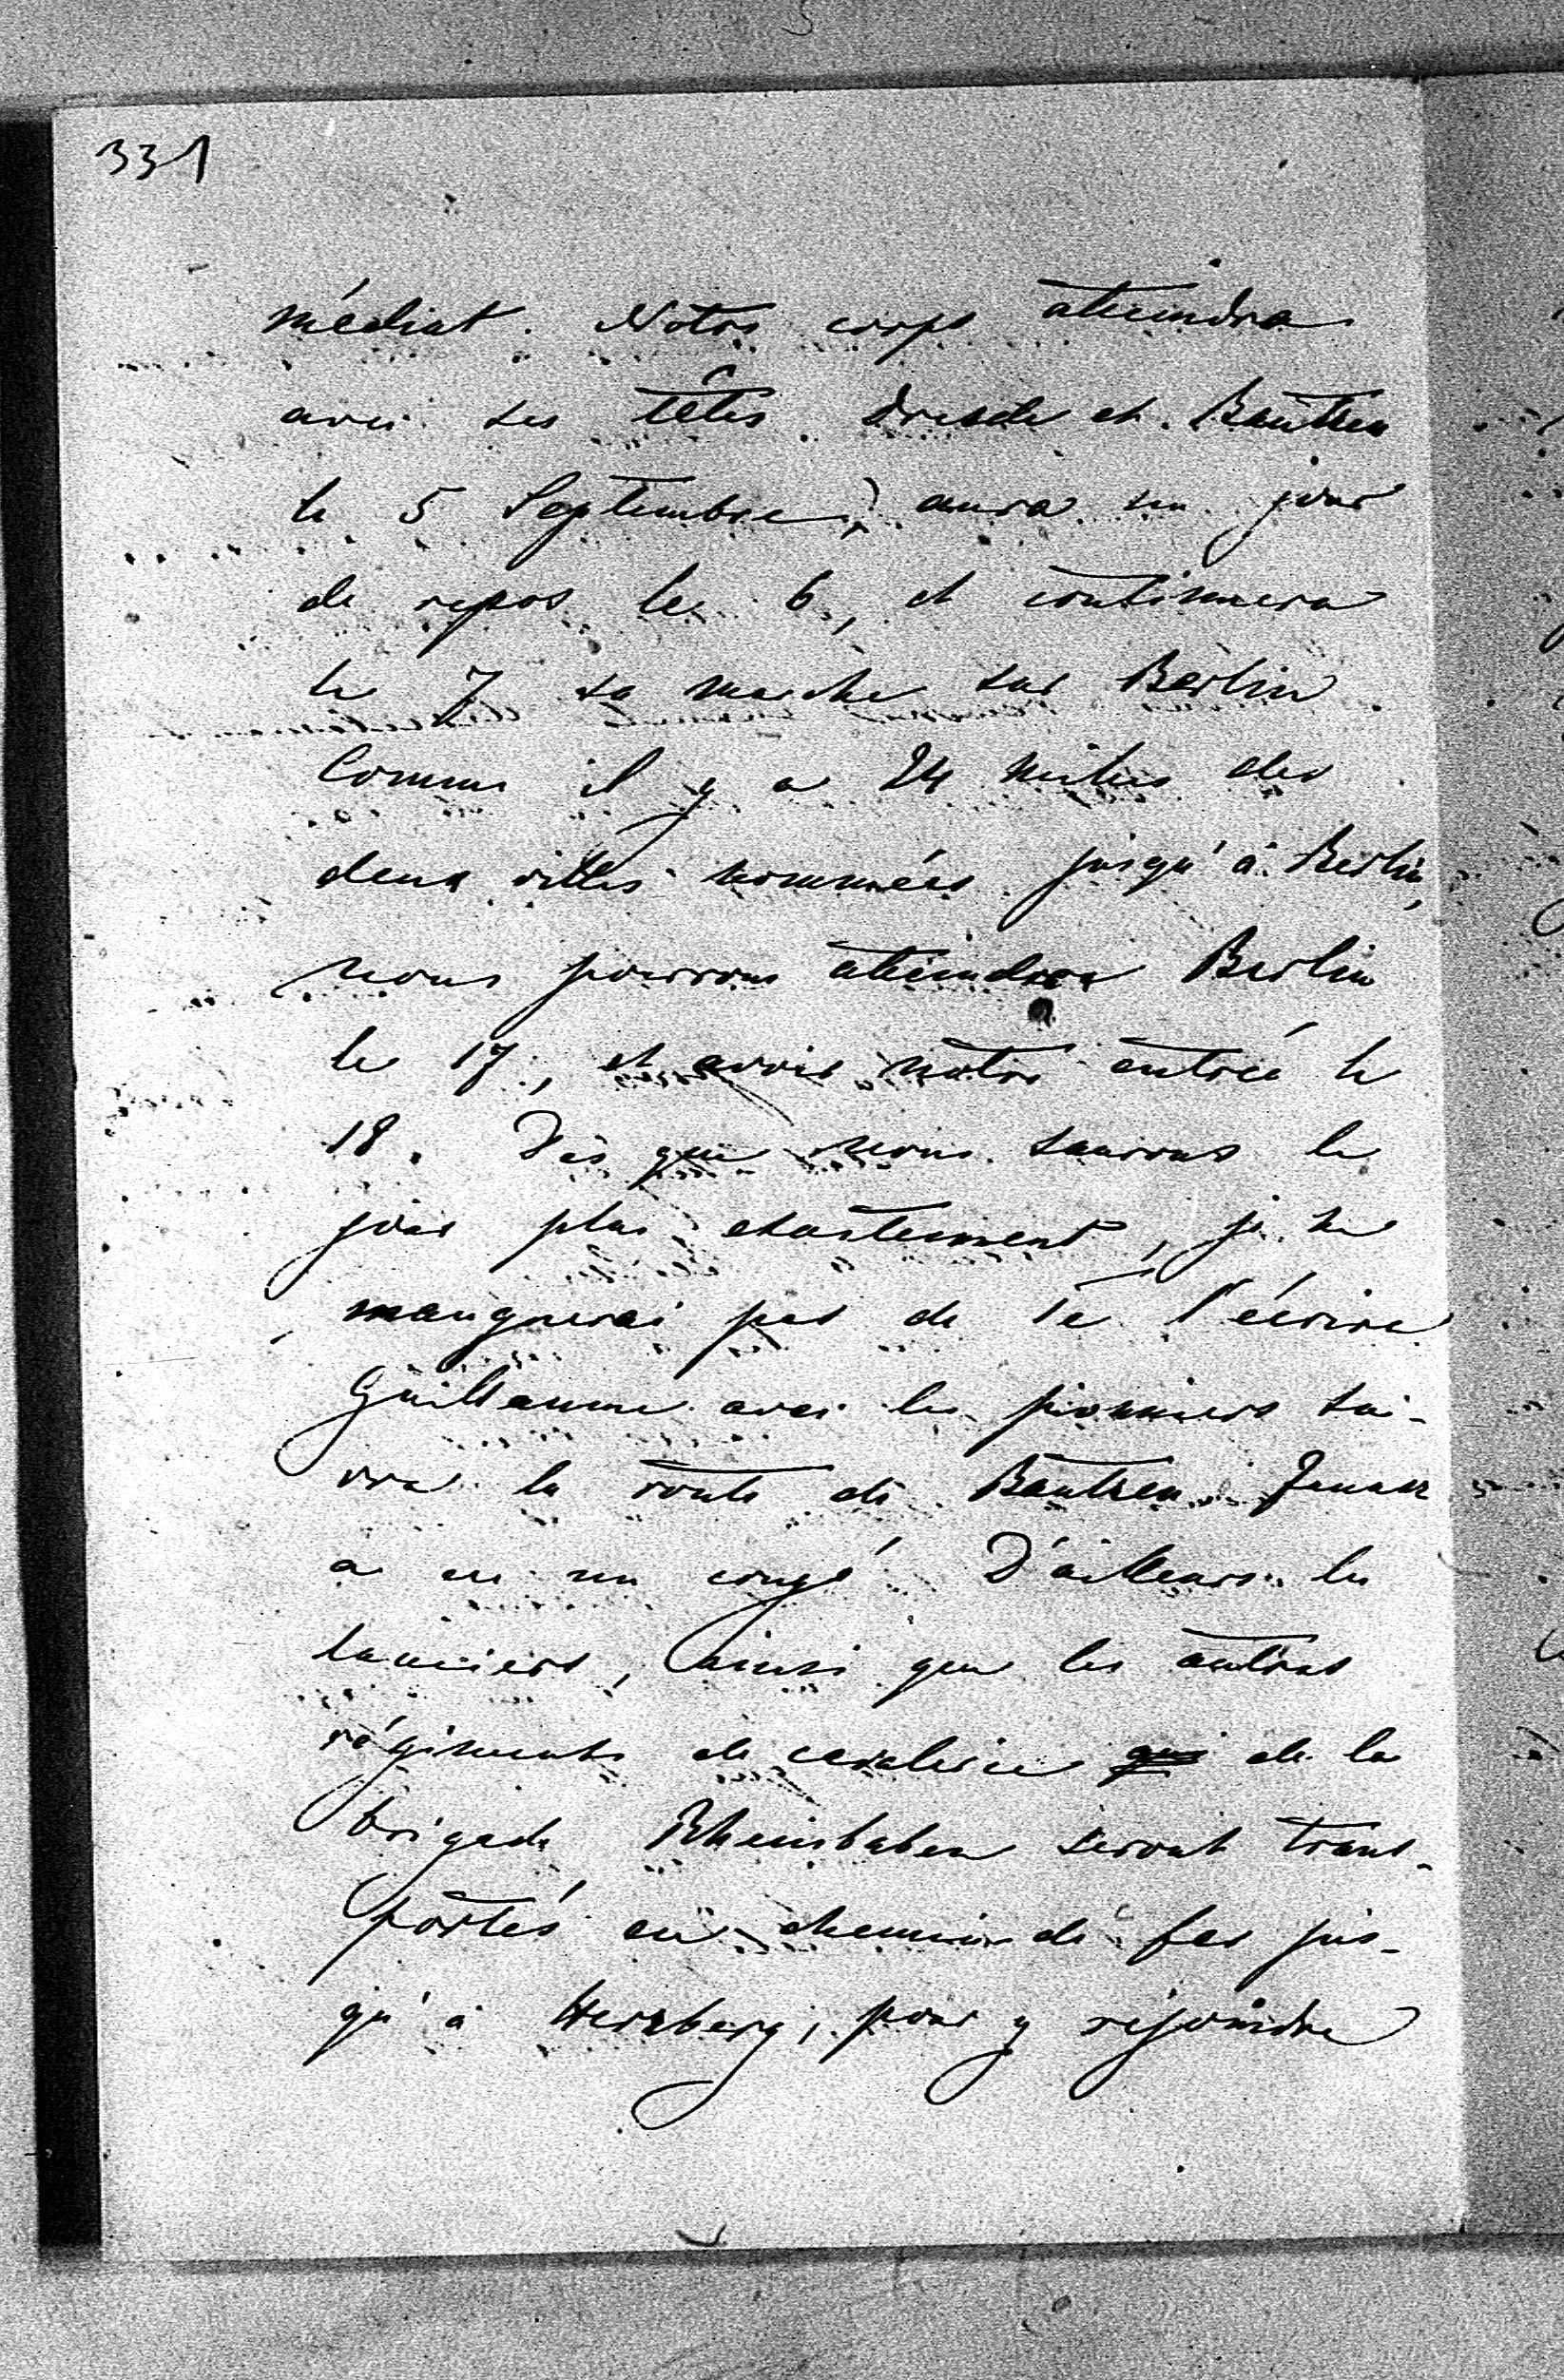 331
médiat. Notre corps atteindra
avec ses têtes Dresde et Bautzen
le 5 Septembre, aura un jour
de repos le 6, et continuera
le 7 sa marche sur Berlin
Comme il y a 24 milles des
deux villes nommées jusqu'à Berlin,
nous pourrons atteindre Berlin
le 17, et avoir notre entrée le
18. Dès que nous saurons le
jour plus exactement, je ne
manquerai pas de te l'écrire
Guillaume avec les pionniers sui-
vra la route de Bautzen
a eu un congé D'ailleurs les
lanciers, ainsi que les autres
régiments de cavalerie qui de la
brigade Rheinbaben seront trans-
portés en chemin de fer jus-
qu'à Herzberg, pour y rejoindre